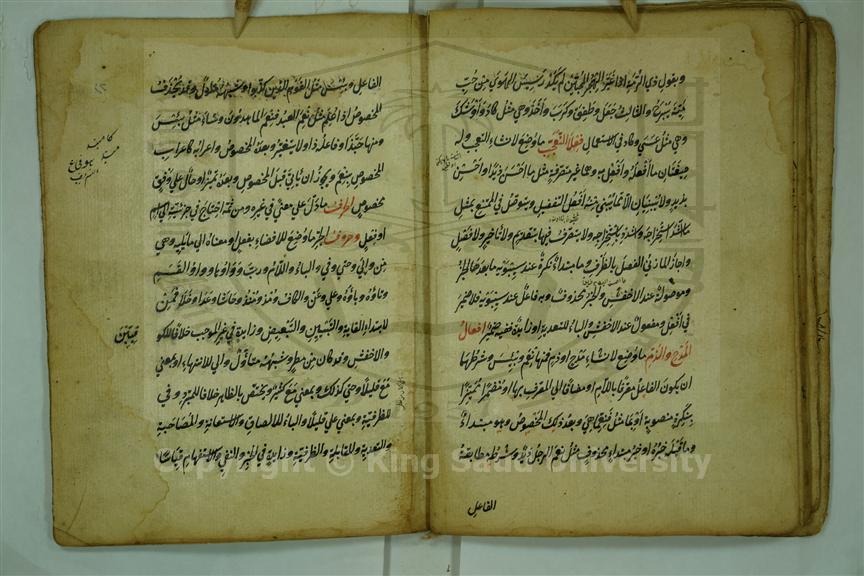 وبقول ذي الرمة اذا غير الهجر المحبين لم يكد رسيس الهوى من حب
مية يبرح والثالث جعل وطفق وكرب واخذ وهي مثل كاد واوشك
وهي مثل عسى وكاد في الاستعمال فعلا التعجب ما وضع لانشاء التعجب وله
صيغتان ما افعله وافعل به وهما غير متصرفين مثل ما احسن زيدا واحسن
بزيد ولا يبنيان الا مما يبنى منه افعل التفضيل ويتوصل في الممتنع بمثل
ما اشد استخراجه واشدد باستخراجه ولا يتصرف فيها بتقديم ولا تاخير ولا فصل
واجاز المازني الفصل بالظرف وما ابتداء نكرة عند سيبويه ما بعدها الخبر
وموصولة عند الاخفش والخبر محذوف وبه فاعل عند سيبويه فلا ضمير
في افعل ومفعول عند الاخفش والباء للتعدية او زايدة ففيه ضمير افعال
المدح والذم ما وضع لانشاء مدح او ذم فمنها نعم وبئس وشرطها
ان يكون الفاعل معرفا باللام او مضافا الى المعرف بها او مضمرا مميزا
بنكرة منصوبة او بما مثل فنعما هي وبعد ذلك المخصوص وهو مبتداء
وما قبله خبره او خبر مبتداء محذوف مثل نعم الرجل زيد وشرطه مطابقة
الفاعل
الفاعل وبئس مثل القوم الذين كذبوا وشبهه متاول وقد يحذف
المخصوص اذا علم مثل نعم العبد فنعم الماهدون وساء مثل بئس
ومنها حبذا وفاعله ذا ولا يتغير وبعده المخصوص واعرابه كاعراب
المخصوص بنعم ويجوز ان ياتي قبل المخصوص وبعده تميز او حال على وفق
مخصوص الحرف ما دل على معنى في غيره ومن ثم احتاج في جزئيته الى اسم
او فعل وحروف الجر ما وضع للافضاء بفعل او معناه الى ما يليه وهي
من والى وحتى وفي والباء واللام ورب وواوها وواو القسم
وتاؤه وباؤه وعلى وعن والكاف ومذ ومنذ وحاشا وعدا وخلا فمن
لابتداء الغاية والتبيين والتبعيض وزايدة في غير الموجب خلافا للكو
فيين
والاخفش وقد كان من مطر وشبهه متاول والى للانتهاء وبمعنى
مع قليلا وحتى كذلك وبمعنى مع كثيرا ويختص بالظاهر خلافا للمبرد وفي
للظرفية وبمعنى على قليلا والباء للالصاق والاستعانة والمصاحبة
والتعدية والمقابلة والظرفية وزايدة في الخبر والنفي والاستفهام قياسا
Copyright © King Saud University